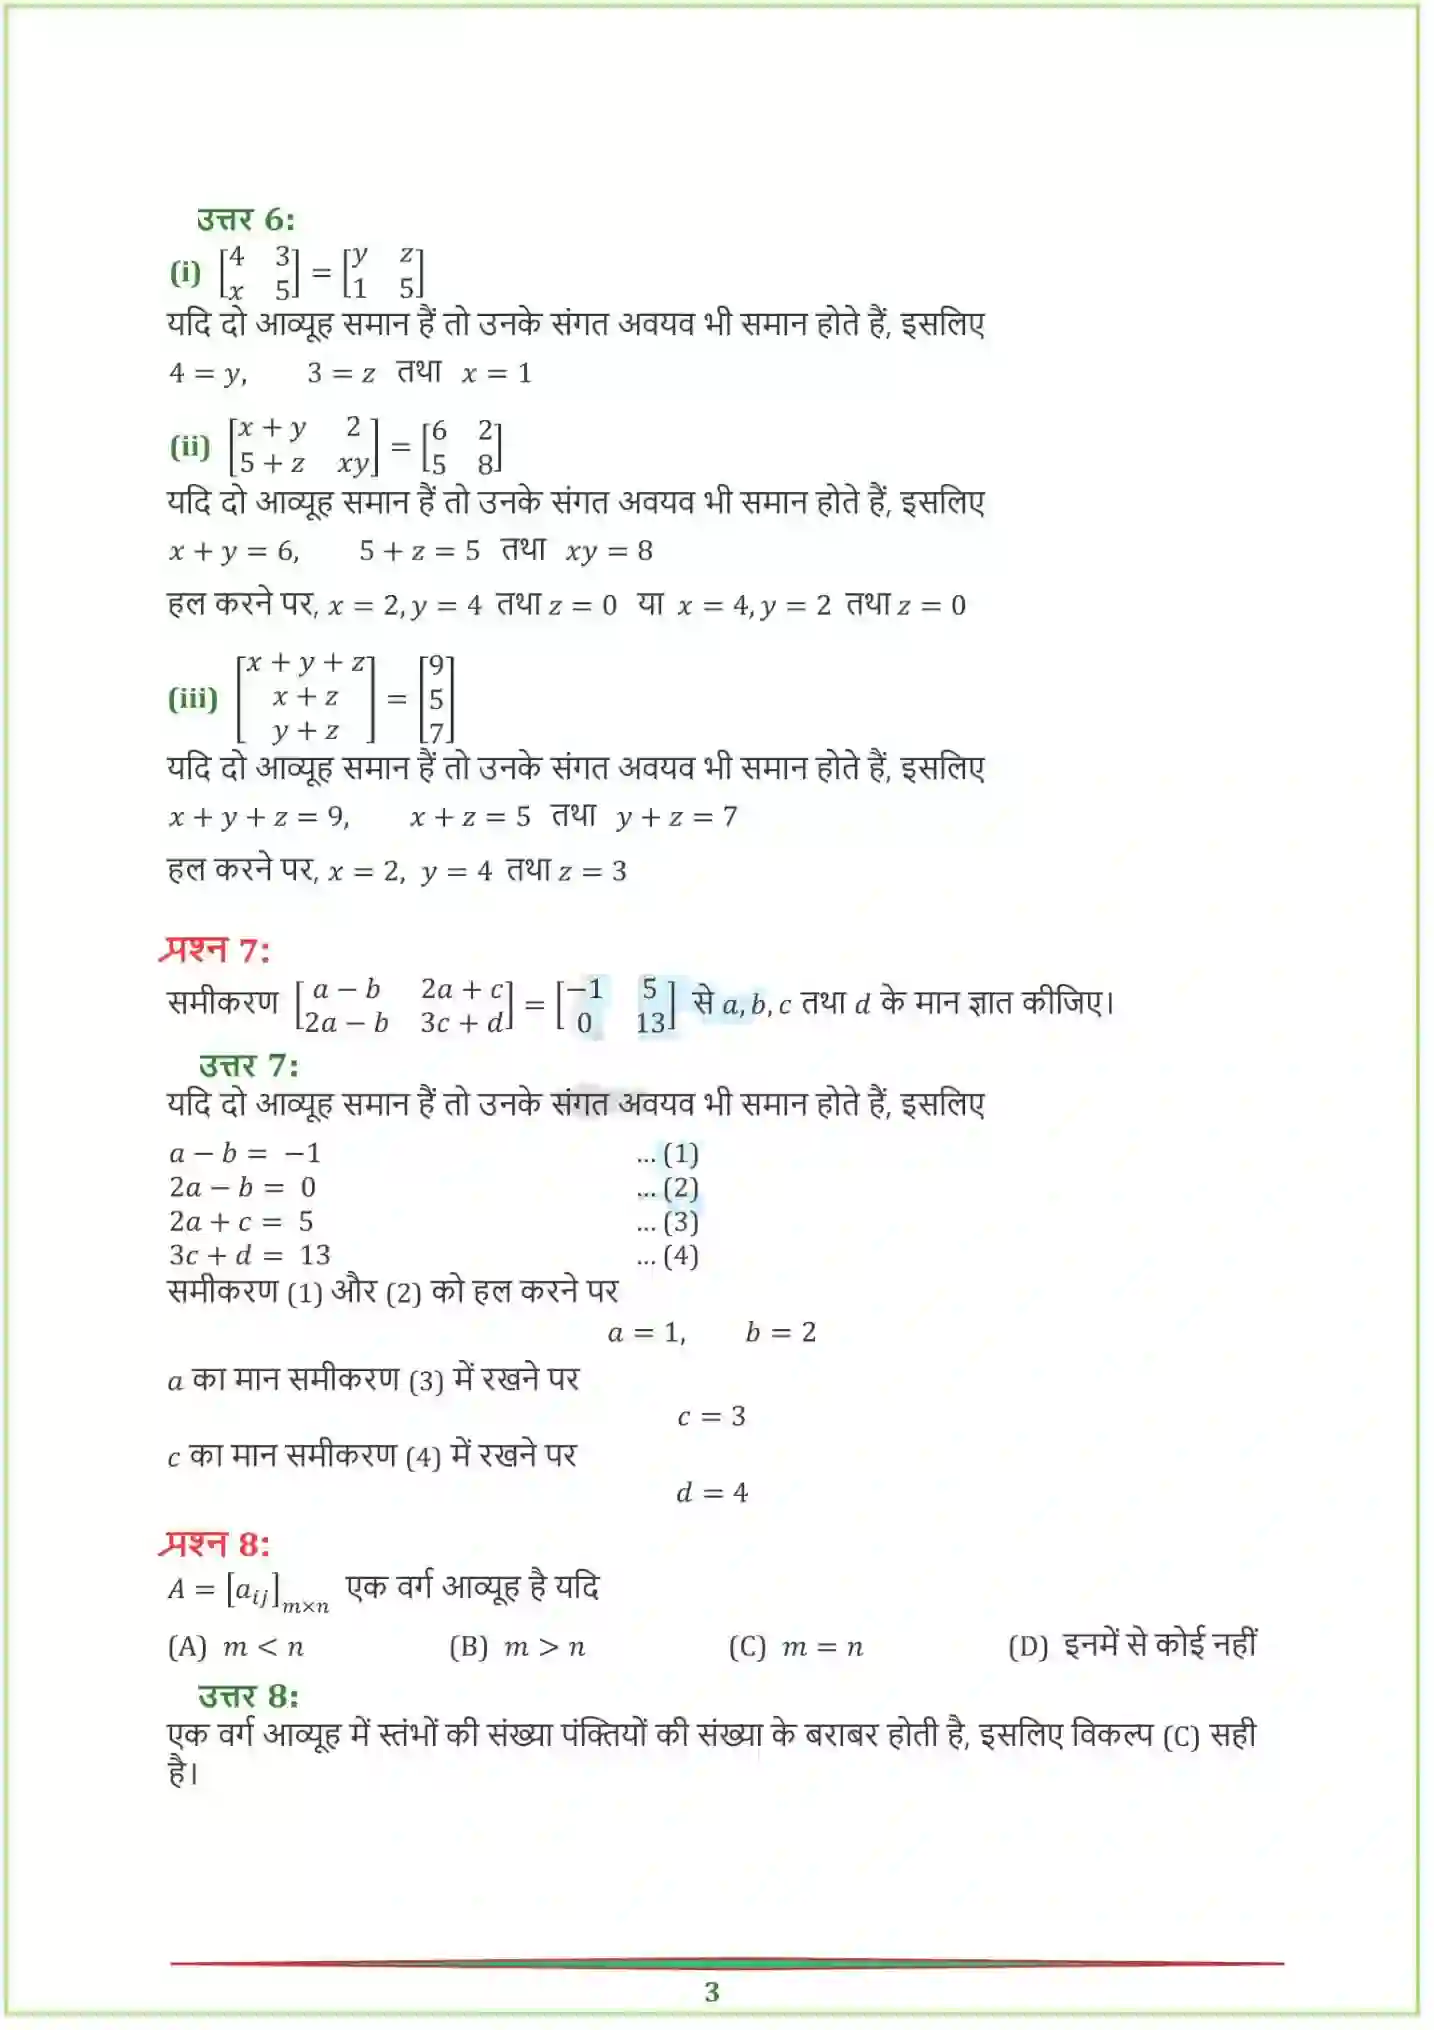 उत्तर 6:
(i) [4 3
x 5] = [y z
1 5]
यदि दो आव्यूह समान हैं तो उनके संगत अवयव भी समान होते हैं, इसलिए
4 = y, 3 = z तथा x = 1
(ii) [x + y 2
5 + z xy] = [6 2
5 8]
यदि दो आव्यूह समान हैं तो उनके संगत अवयव भी समान होते हैं, इसलिए
x + y = 6, 5 + z = 5 तथा xy = 8
हल करने पर, x = 2, y = 4 तथा z = 0 या x = 4, y = 2 तथा z = 0
(iii) [x + y + z
x + z
y + z] = [9
5
7]
यदि दो आव्यूह समान हैं तो उनके संगत अवयव भी समान होते हैं, इसलिए
x + y + z = 9, x + z = 5 तथा y + z = 7
हल करने पर, x = 2, y = 4 तथा z = 3
प्रश्न 7:
समीकरण [a − b 2a + c
2a − b 3c + d] = [−1 5
0 13] से a, b, c तथा d के मान ज्ञात कीजिए।
उत्तर 7:
यदि दो आव्यूह समान हैं तो उनके संगत अवयव भी समान होते हैं, इसलिए
a − b = −1 ... (1)
2a − b = 0 ... (2)
2a + c = 5 ... (3)
3c + d = 13 ... (4)
समीकरण (1) और (2) को हल करने पर
a = 1, b = 2
a का मान समीकरण (3) में रखने पर
c = 3
c का मान समीकरण (4) में रखने पर
d = 4
प्रश्न 8:
A = [aij]m×n एक वर्ग आव्यूह है यदि
(A) m < n (B) m > n (C) m = n (D) इनमें से कोई नहीं
उत्तर 8:
एक वर्ग आव्यूह में स्तंभों की संख्या पंक्तियों की संख्या के बराबर होती है, इसलिए विकल्प (C) सही
है।
3